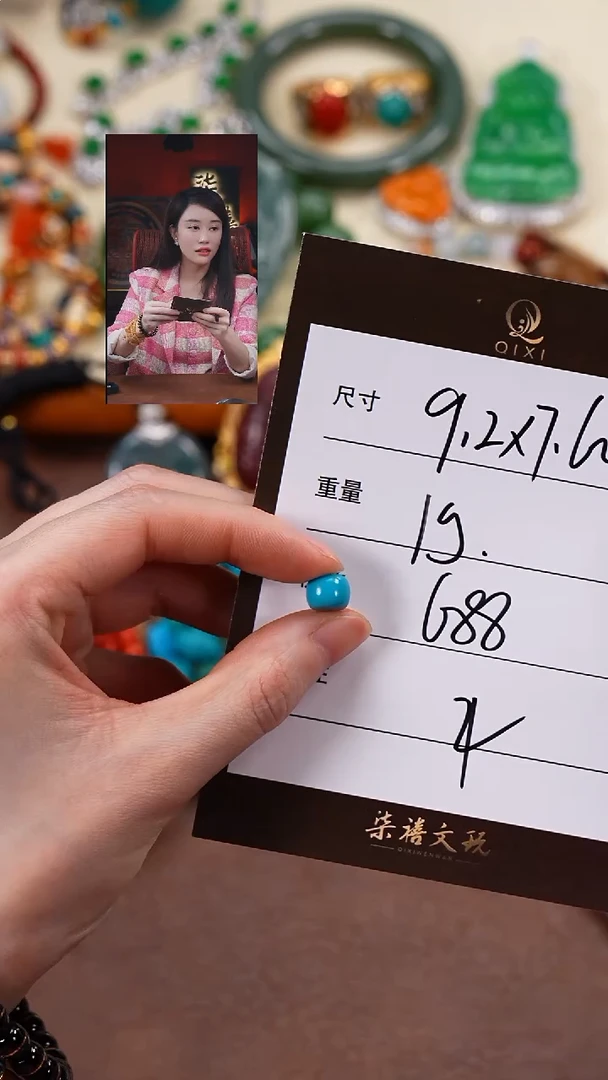 QIXI
尺寸 9.2x7.6
重量 1g.
688
柒禧文玩
QIXIWENWAN
柒